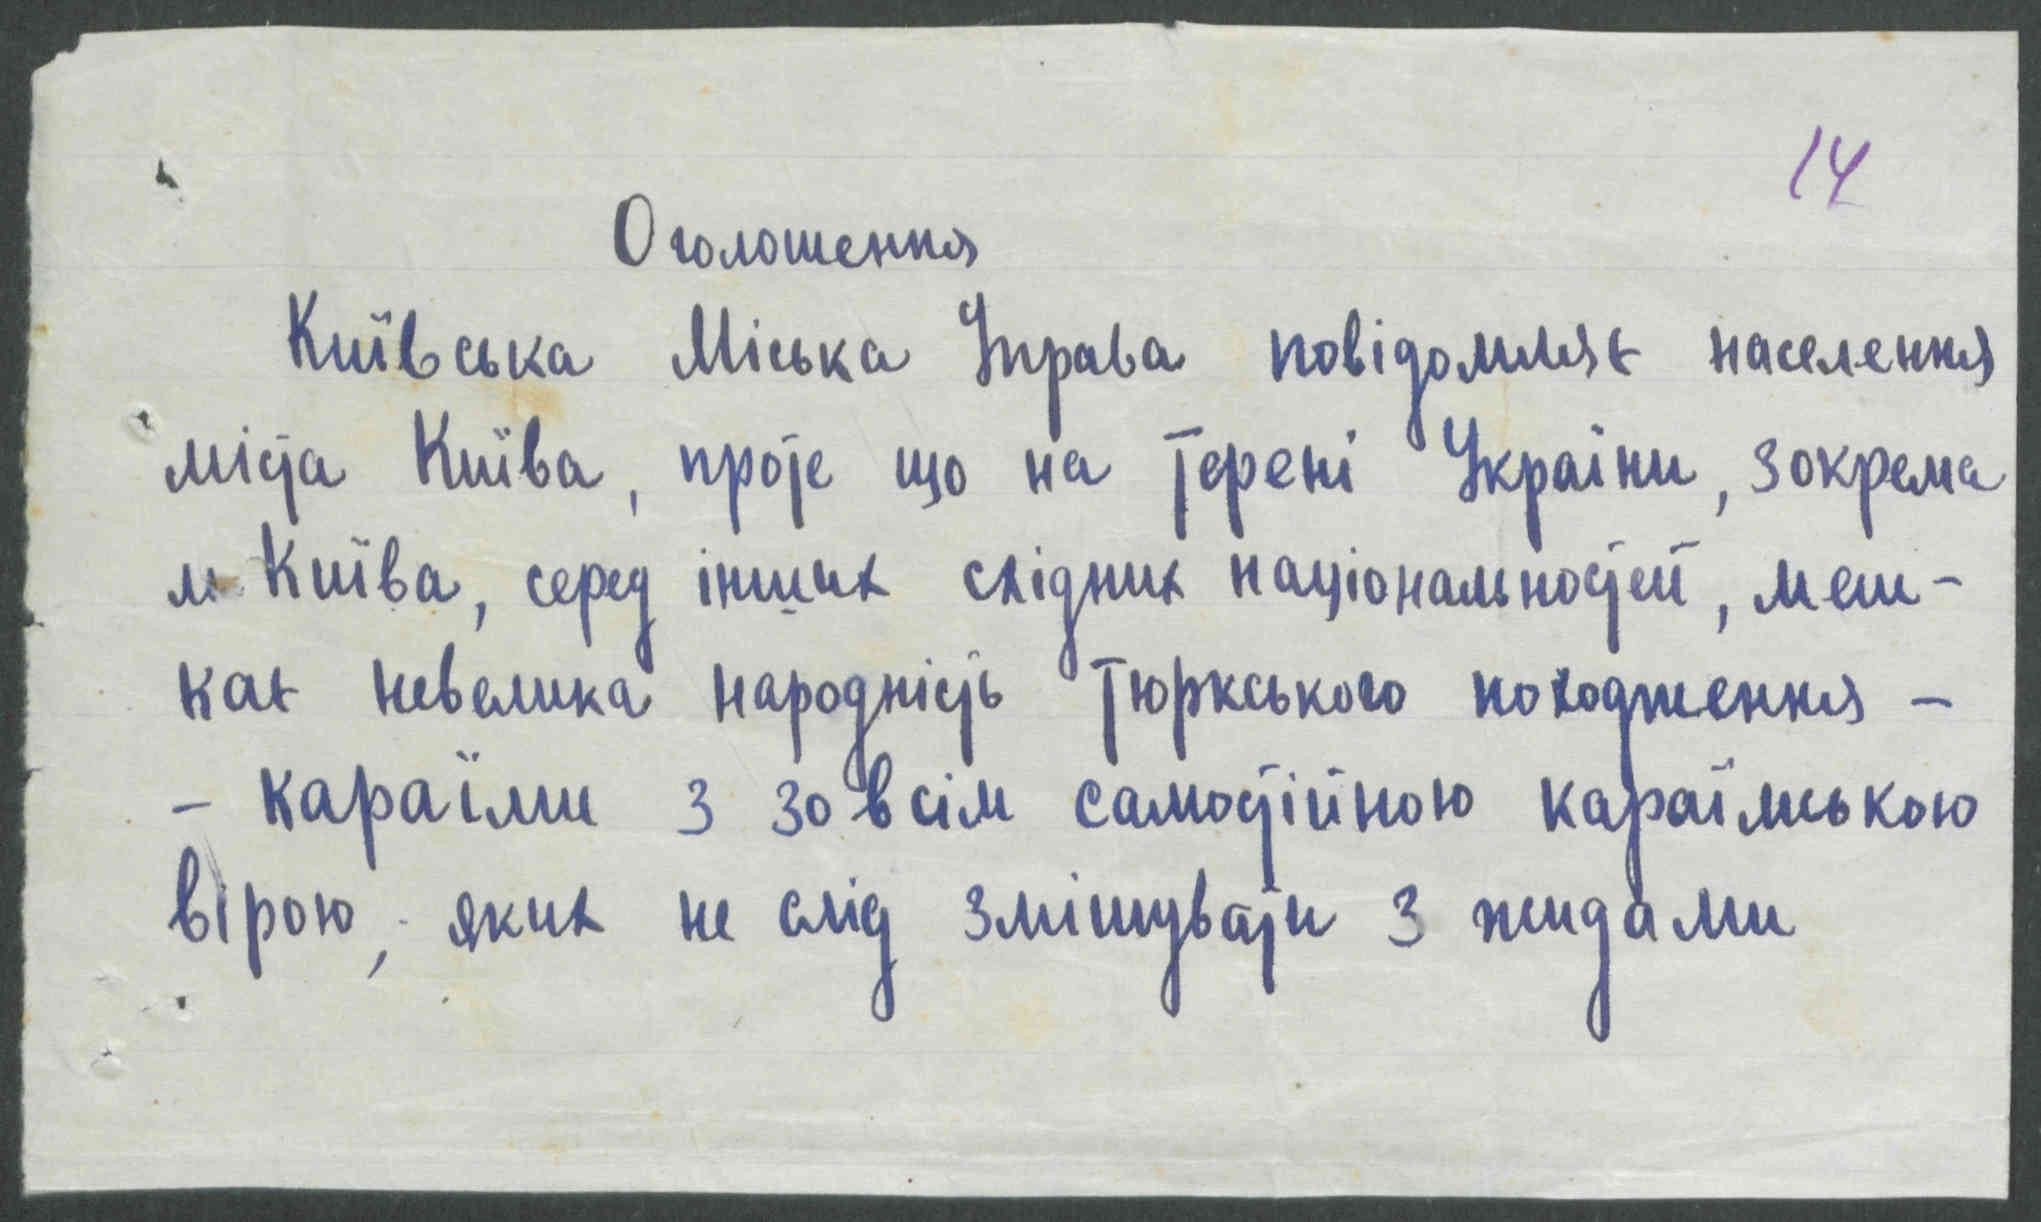 14
Оголошення
Київська Міська Управа повідомляє населення
міста Київа, проте що на терені України, зокрема
м. Київа, серед інших східних національностей, меш-
кає невелика народність тюркського походження -
- караїми з зовсім самостійною караїмською
вірою, яких не слід змішувати з жидами